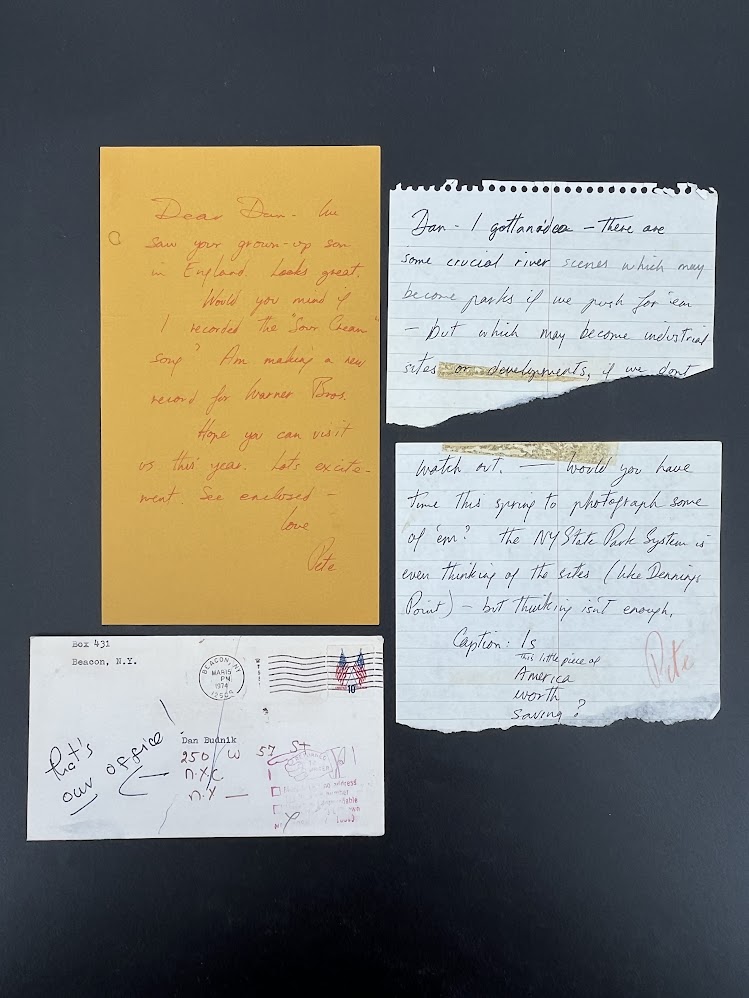 Dear Dan - We
saw your grown-up son
in England. Looks great.
Would you mind if
I recorded the "Sour Cream"
song? Am making a new
record for Warner Bros.
Hope you can visit
us this year. Lots excite-
ment. See enclosed -
love
Pete
Dan - I gottanidea - There are
some crucial river scenes which may
become parks if we push for 'em
- but which may become industrial
sites or developments, if we dont
watch out. — Would you have
time this spring to photograph some
of 'em? The NY State Park System is
even thinking of the sites (like Dennings
Point) - but thinking isn't enough.
Caption: Is
this little piece of
America
worth
saving?
Pete
Box 431
Beacon, N.Y.
BEACON, NY
MAR 15
PM
1974
12508
10
Dan Budnik
250 W 57 St
N.Y.C.
N.Y —
that's
our office!